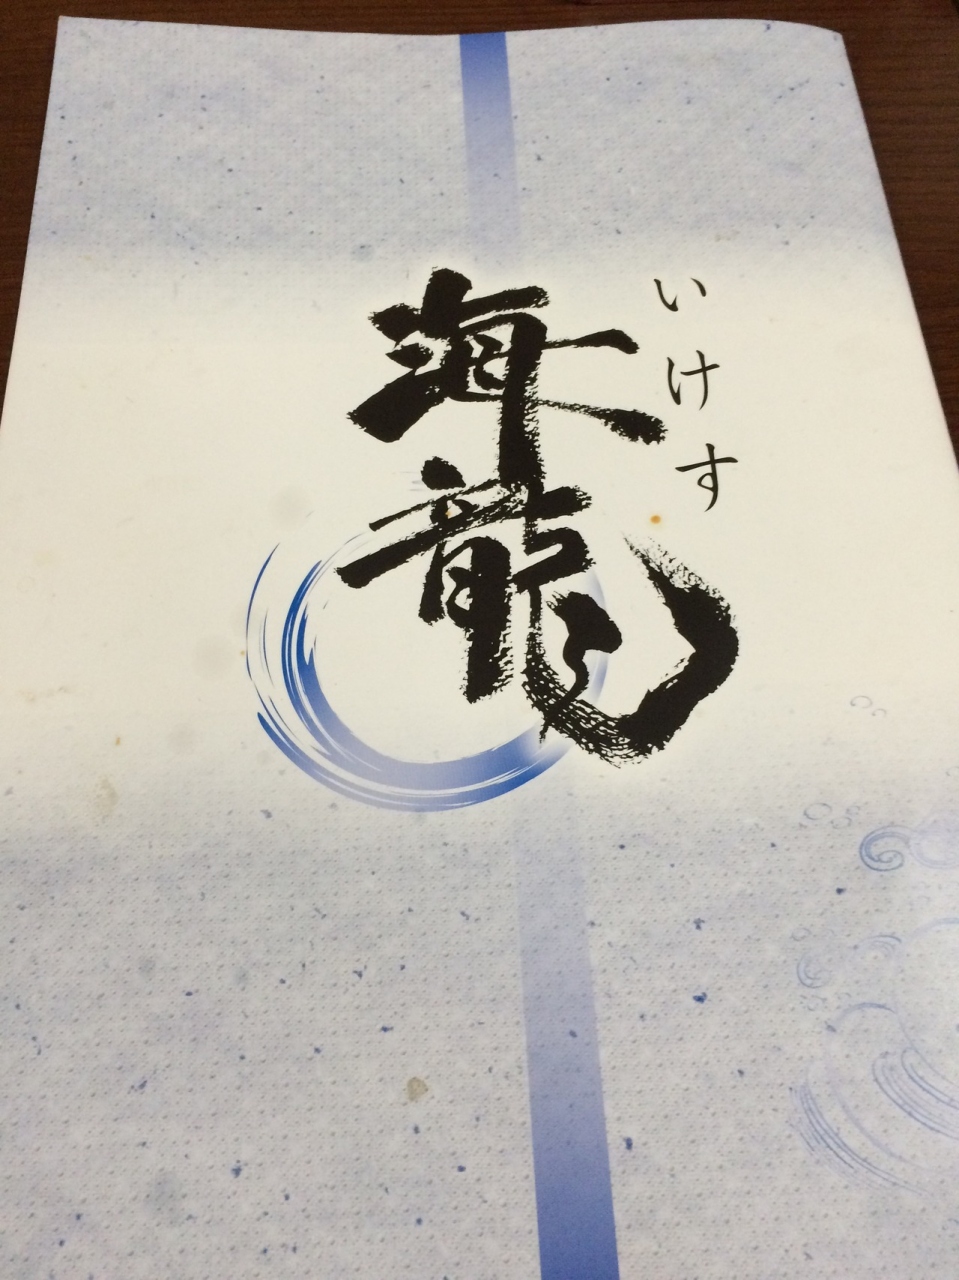 いけす
海龍